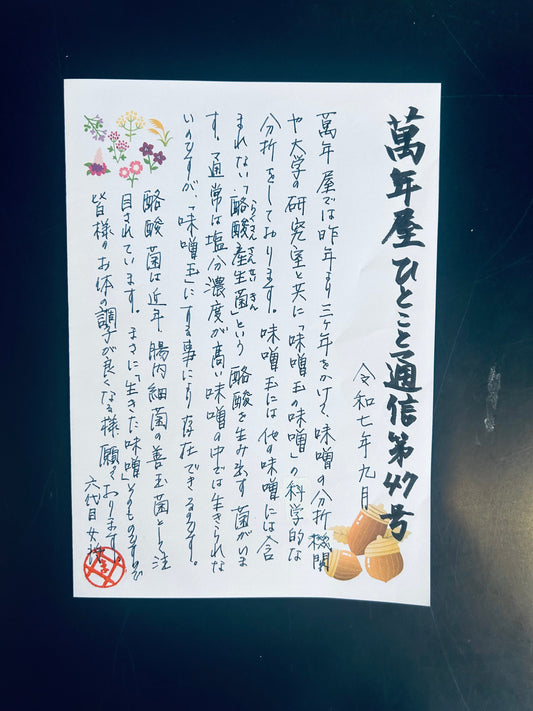 萬年屋ひとこと通信第47号
令和七年九月
萬年屋では昨年より三ヶ年をかけて、味噌の分析機関
や大学の研究室と共に「味噌玉の味噌」の科学的な
分析をしております。味噌玉には他の味噌には含
まれない「酪酸産生菌」という酪酸を生み出す菌がいま
らくさんさんせいきん
す。通常は塩分濃度が高い味噌の中では生きられな
いのですが「味噌玉」にする事により存在できるのです。
酪酸菌は近年腸内細菌の善玉菌として注
目されています。まさに「生きた味噌」そのものですので
皆様のお体の調子が良くなる様願っております。
六代目女将